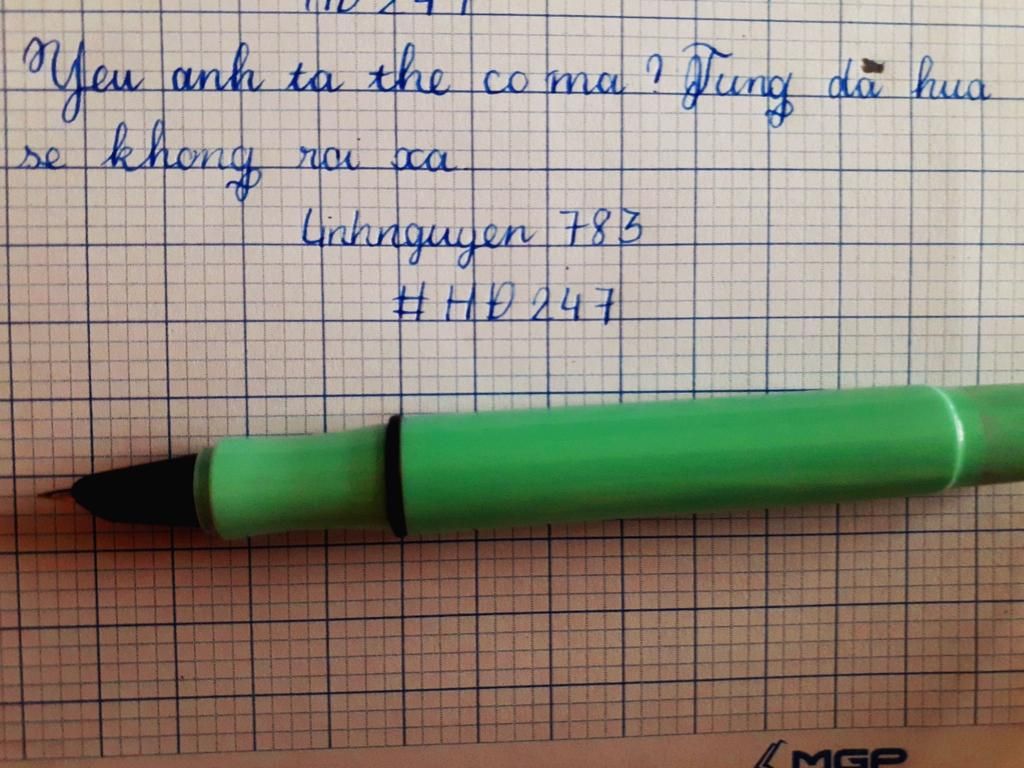 Yeu anh ta the co ma ? Tung dã hua
se khong rai xa
Linhnguyen 783
#HĐ247
MGP